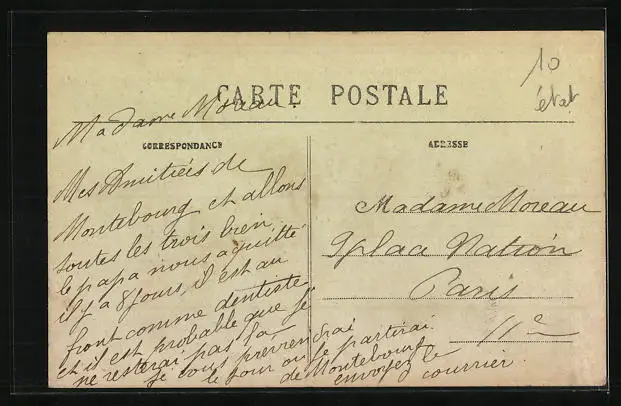 10
état
CARTE POSTALE
Madame Moreau
CORRESPONDANCE
ADRESSE
Mes Amitiées de
Montebourg et allons
toutes les trois bien
le papa nous a quitté
il y a 8 jours, il est au
front comme dentiste
et il est probable que je
ne resterai pas là
je vous préviendrai
le jour où je partirai
de Montebourg
envoyez le
courrier.
Madame Moreau
9 place Nation
Paris
11e